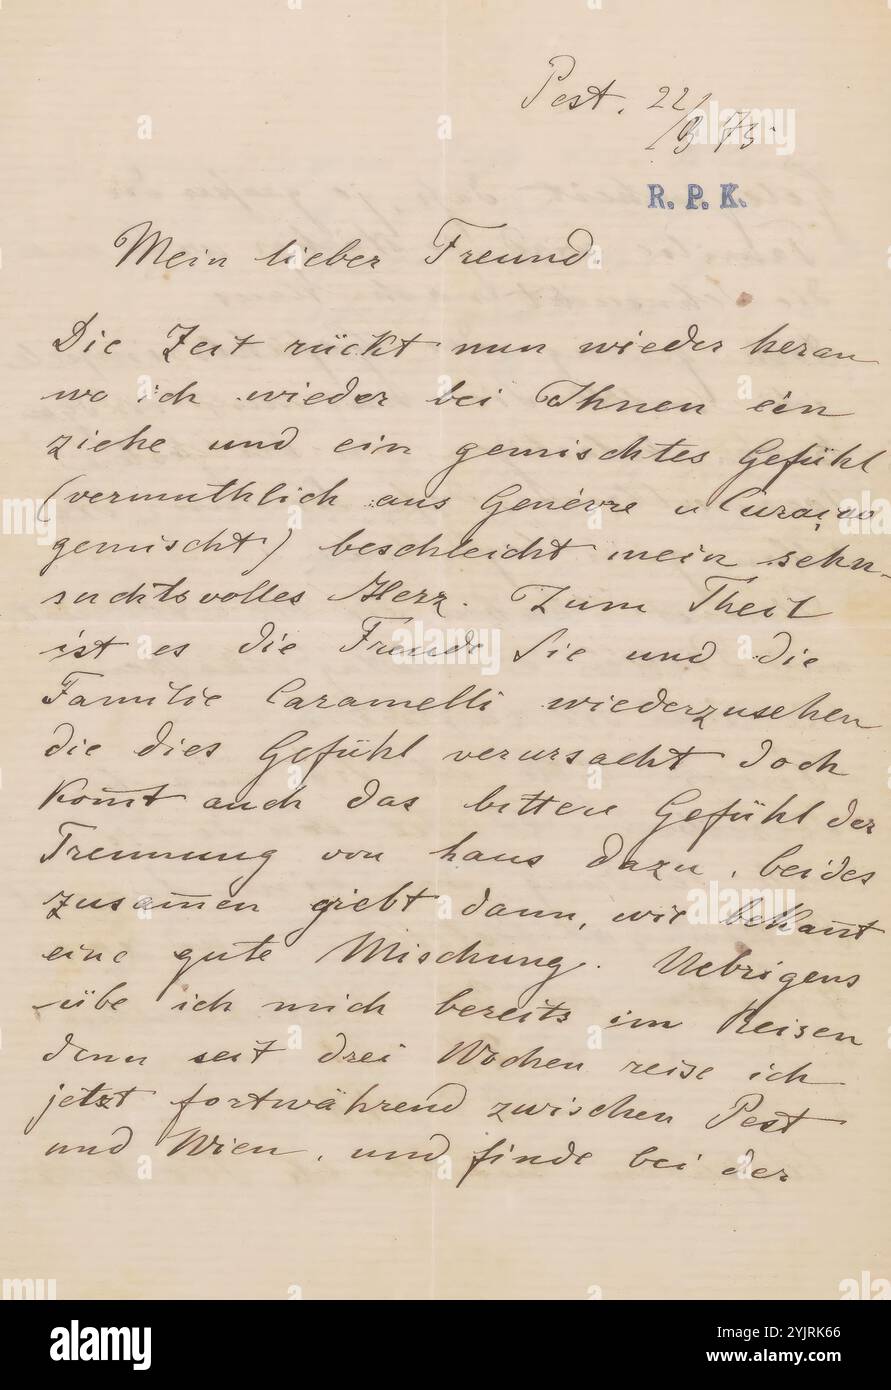 Pest. 22/9 73.
R. P. K.
Mein lieber Freund.
Die Zeit rückt nun wieder heran
wo ich wieder bei Ihnen ein
ziehe und ein gemischtes Gefühl
(vermuthlich aus Genévre u Curaçao
gemischt) beschleicht mein sehn-
suchtsvolles Herz. Zum Theil
ist es die Freude Sie und die
Familie Caramelli wiederzusehen
die dies Gefühl verursacht doch
kom̅t auch das bittere Gefühl der
Trennung von haus dazu, beides
zusam̅en giebt dann, wie bekan̅t
eine gute Mischung. Uebrigens
übe ich mich bereits im Reisen
denn seit drei Wochen reise ich
jetzt fortwährend zwischen Pest
und Wien, und finde bei der
alamy
Image ID: 2YJRK66
www.alamy.com